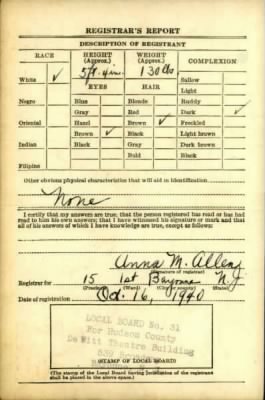 REGISTRAR'S REPORT
DESCRIPTION OF REGISTRANT
RACE HEIGHT (Approx.) WEIGHT (Approx.) COMPLEXION
White ✓ 5 ft. 4 in. 130 lbs Sallow
EYES HAIR Light
Negro Blue Blonde Ruddy
Gray Red Dark ✓
Oriental Hazel Brown ✓ Freckled
Brown ✓ Black Light brown
Indian Black Gray Dark brown
Bald Black
Filipino
Other obvious physical characteristics that will aid in identification
None
I certify that my answers are true; that the person registered has read or has had
read to him his own answers; that I have witnessed his signature or mark and that
all of his answers of which I have knowledge are true, except as follows:
Anna M. Allen
(Signature of registrar)
Registrar for 15 1st Bayonne N.J.
(Precinct) (Ward) (City or county) (State)
Date of registration Oct. 16, 1940
LOCAL BOARD No. 31
For Hudson County
De Witt Theatre Building
(STAMP OF LOCAL BOARD)
(The stamp of the Local Board having jurisdiction of the registrant
shall be placed in the above space.)